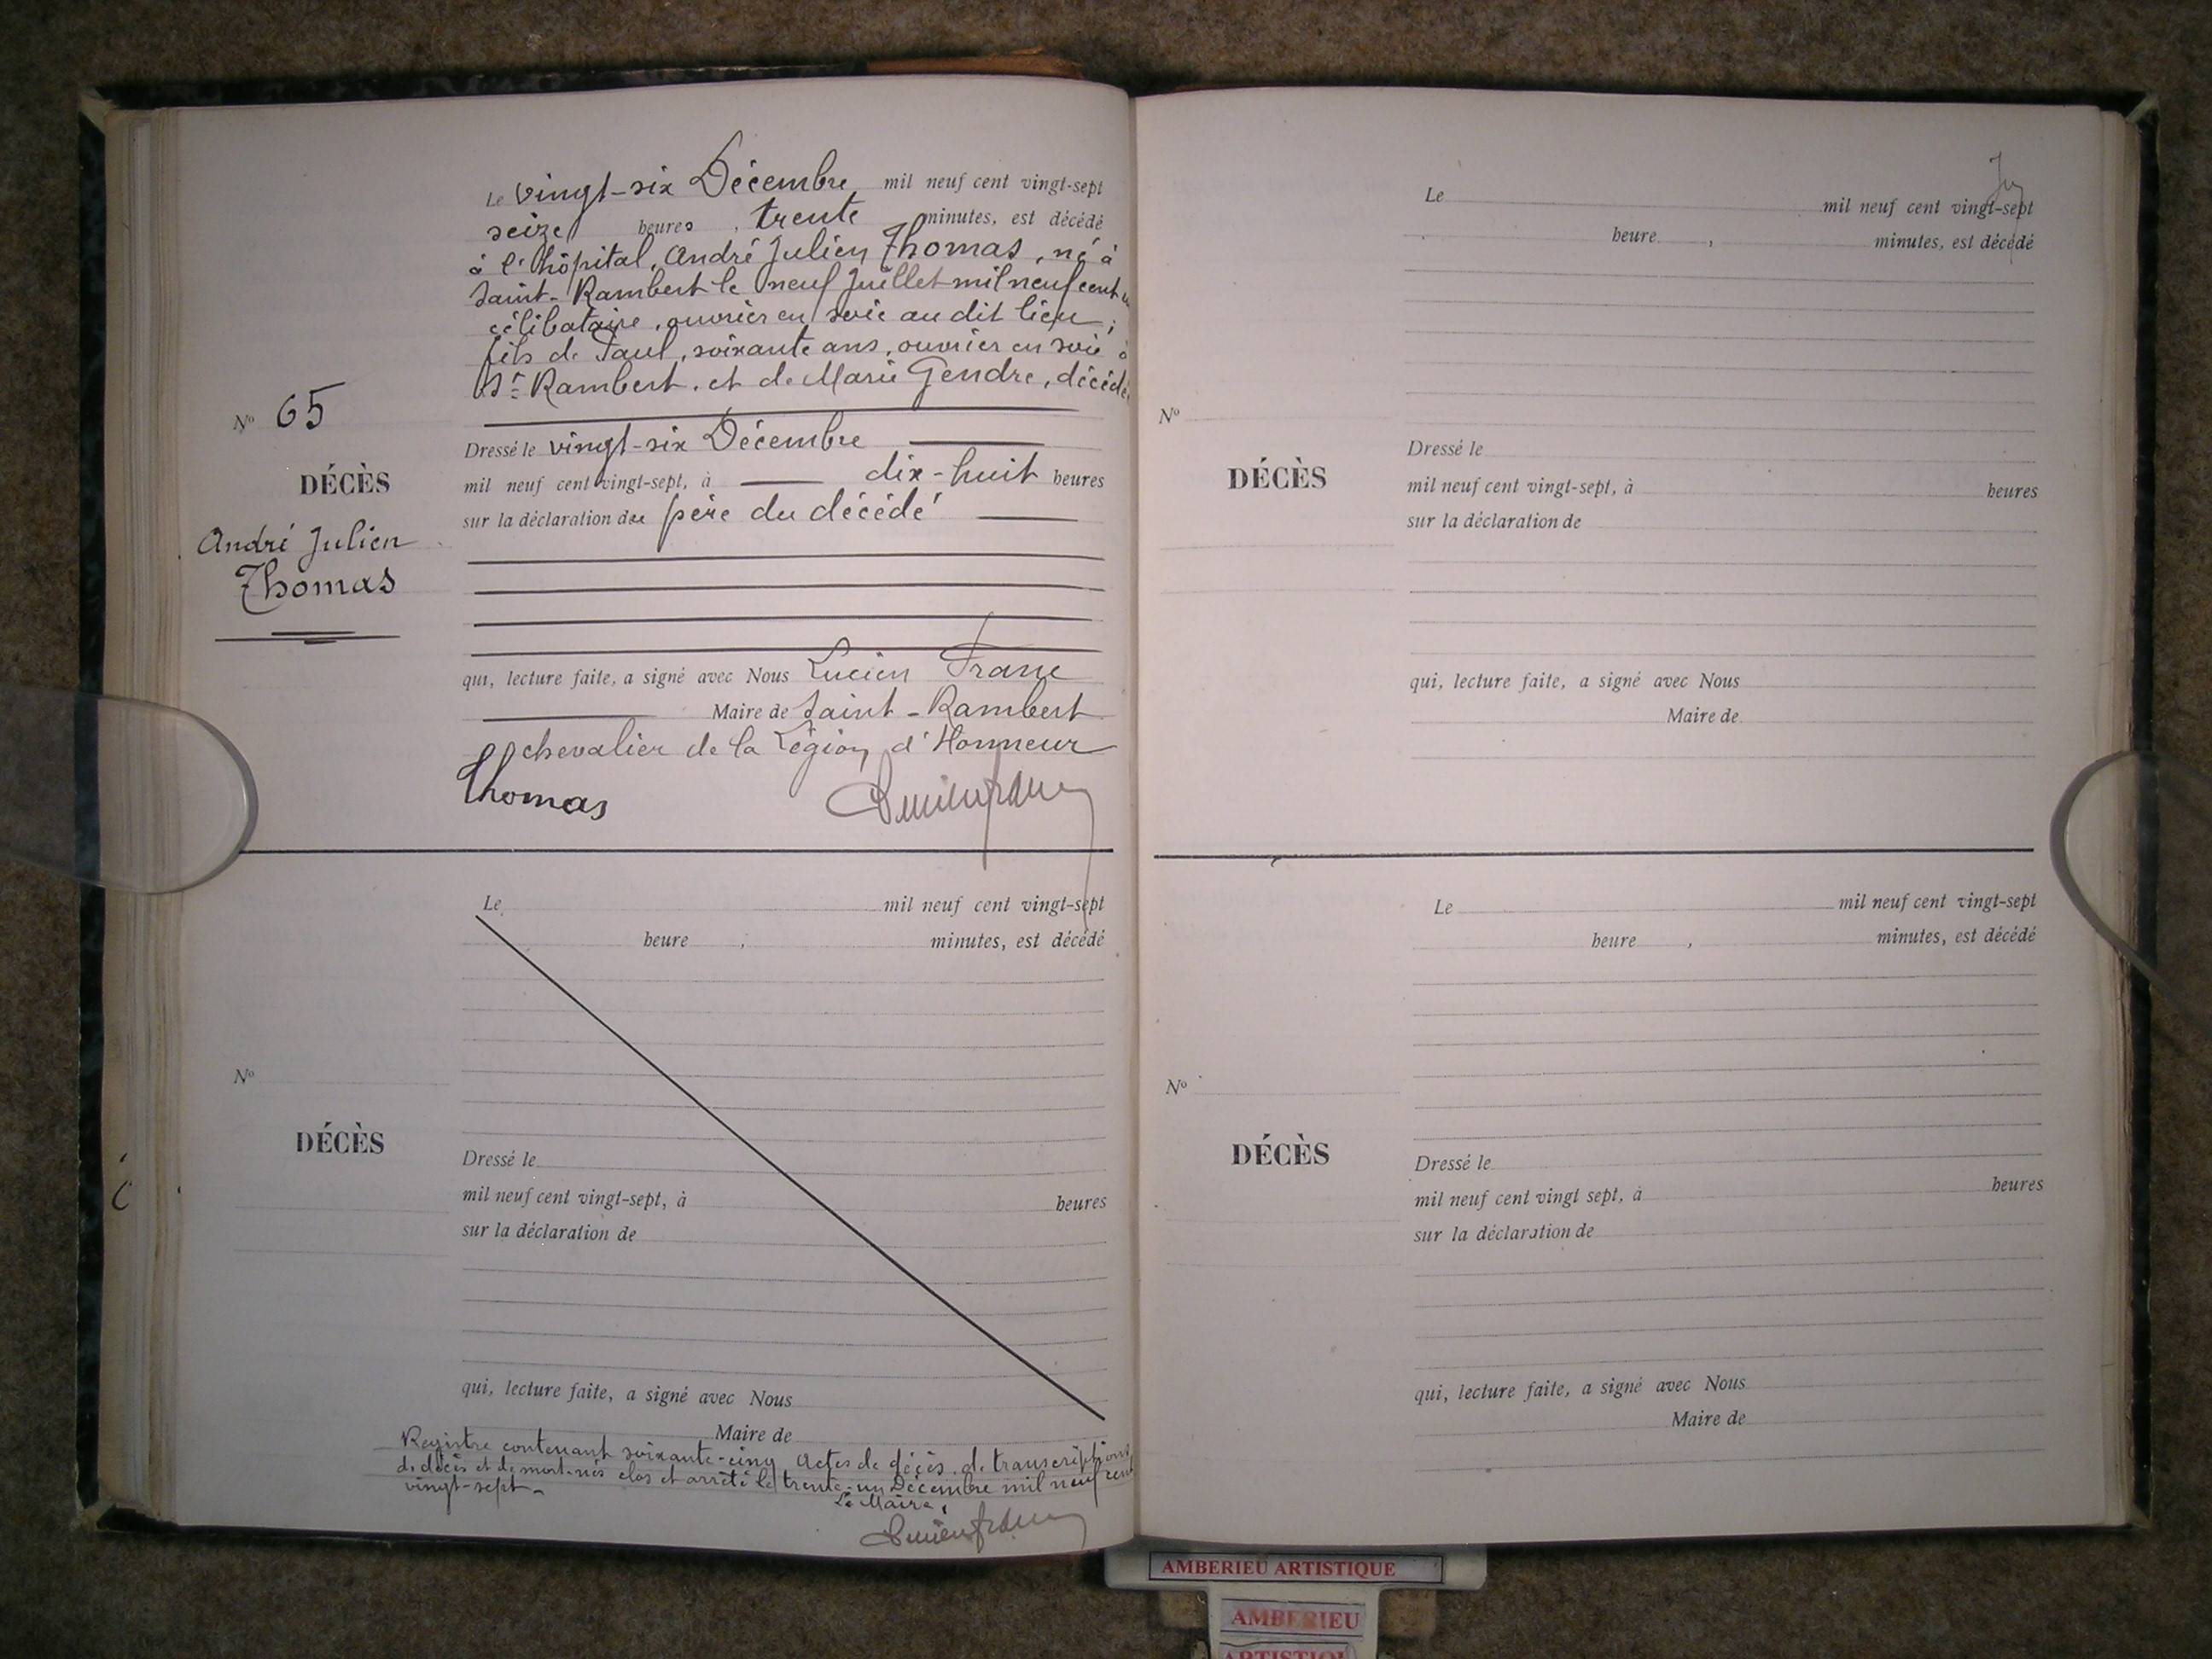 Le vingt-six Décembre mil neuf cent vingt-sept
seize heures, trente minutes, est décédé
à l'hôpital, André Julien Thomas, né à
Saint-Rambert le neuf Juillet mil neuf cent
célibataire, ouvrier en soie au dit lieu;
fils de Paul, soixante ans, ouvrier en soie à
St Rambert, et de Marie Gendre, décédée
No 65
DÉCÈS
André Julien
Thomas
Dressé le vingt-six Décembre
mil neuf cent vingt-sept, à dix-huit heures
sur la déclaration du père du décédé
qui, lecture faite, a signé avec Nous Lucien Franc
Maire de Saint-Rambert
chevalier de la Légion d'Honneur
Thomas
Le mil neuf cent vingt-sept
heure , minutes, est décédé
No
DÉCÈS
Dressé le
mil neuf cent vingt-sept, à heures
sur la déclaration de
qui, lecture faite, a signé avec Nous
Maire de
Registre contenant soixante-cinq actes de décès, de transcriptions
de décès et de mort-nés clos et arrêté le trente-un Décembre mil neuf cent
vingt-sept.
Le Maire,
Le mil neuf cent vingt-sept
heure , minutes, est décédé
No
DÉCÈS
Dressé le
mil neuf cent vingt-sept, à heures
sur la déclaration de
qui, lecture faite, a signé avec Nous
Maire de
Le mil neuf cent vingt-sept
heure , minutes, est décédé
No
DÉCÈS
Dressé le
mil neuf cent vingt sept, à heures
sur la déclaration de
qui, lecture faite, a signé avec Nous
Maire de
AMBERIEU ARTISTIQUE
AMBERIEU
ARTISTIQUE